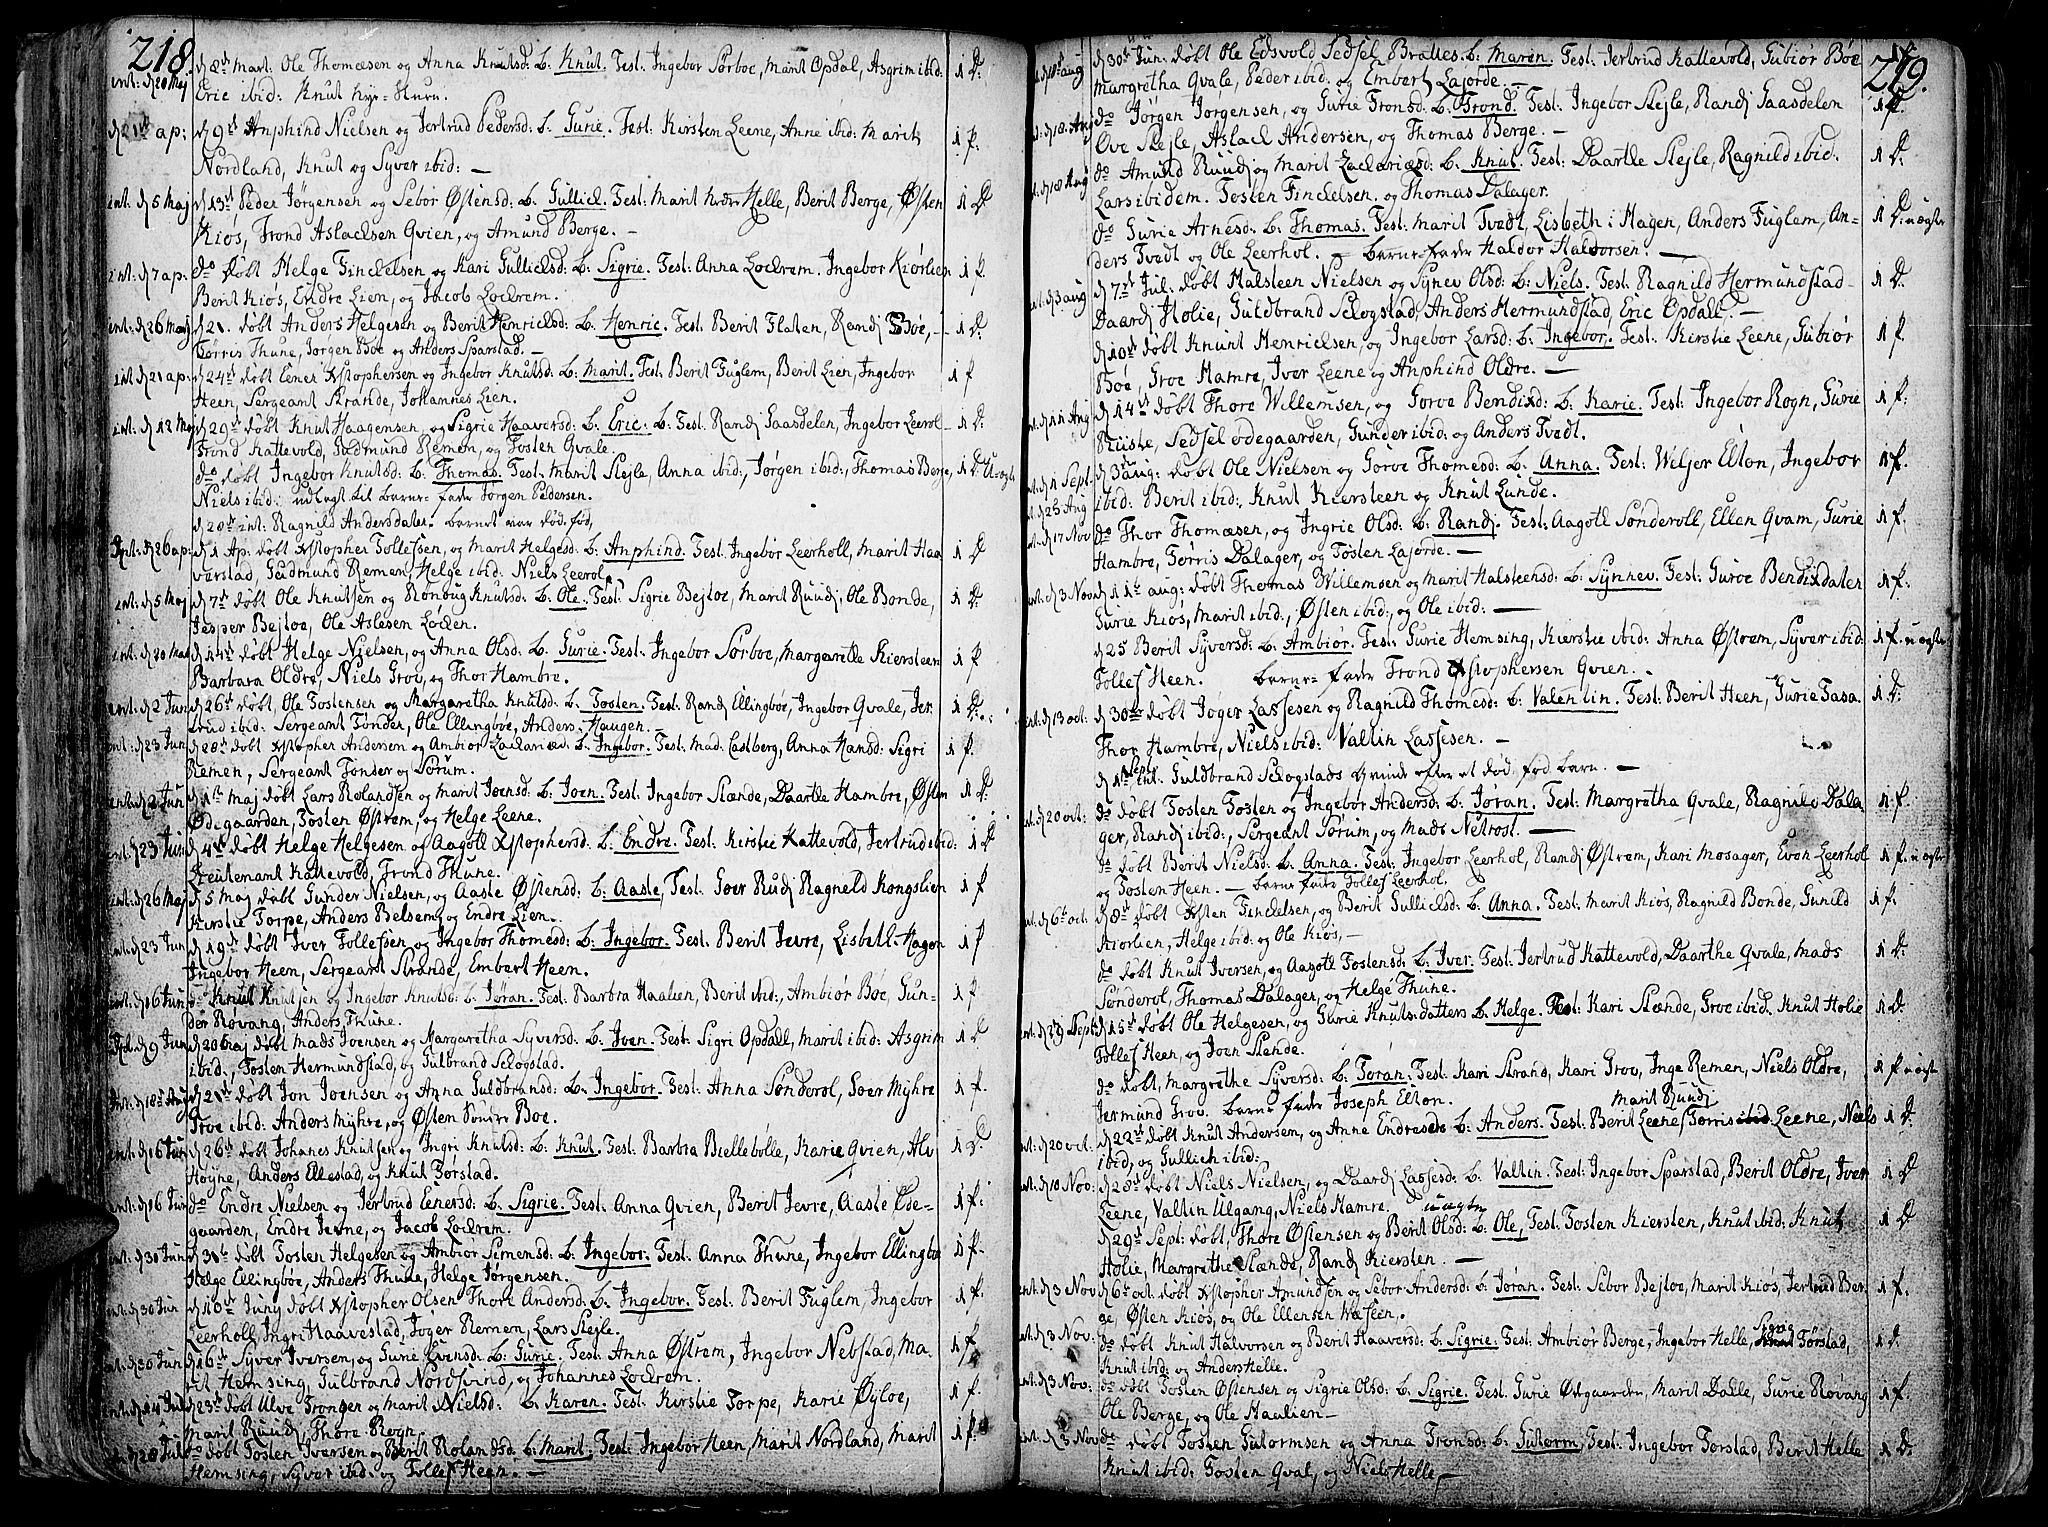 218.
int: d 20 Maj d 8de Mart. Ole Thomæsen og Anna Knutsd: b. Knut. Test: Ingebor Sørboe, Marit Opdal, Asgrim ibid: 1 D:
Eric ibid: Knut Kye-Huun.
d 21de ap: d 9de Anphind Nielsen og Jertrud Pedersd: b. Gurie. Test: Kirsten Leene, Anne ibid: Marit 1 P.
Nordland, Knut og Syver ibid: —
int: d 5 Maj d 13de Peder Jørgensen og Sebor Østensd: b. Gulliel. Test: Marit Helle, Berit Berge, Østen 1 D
Kiøs, Trond Aslacksen Qvien, og Amund Berge. —
int: d 7 ap: do døbt Helge Finckelsen og Kari Gullicksd: b. Sigrie. Test: Anna Lockrem. Ingebor Kiørlien 1 P.
Berit Kiøs, Endre Lien, og Jacob Lockrem.
int: d 26 Maj d 21. døbt Anders Helgesen og Berit Henricksd: b. Henric. Test: Berit Flaten, Randj Bøe, 1 D.
Tørris Thune, Jørgen Bøe og Anders Sparstad. —
int: d 21 ap: d 24de døbt Ener Xstophersen og Ingebor Knutsd: b. Marit. Test: Berit Fuglem, Berit Lien, Ingebor 1 P
Heen, Sergeant Strande, Johannes Lien.
int: d 12 Maj d 29de døbt Knut Haagensen, og Sigrie Haaversd: b. Eric. b. Test: Randj Gaasdelen, Ingebor Leerol 1 D:
Trond Kattevold, Gudmund Remen, og Tosten Qvale.
do døbt Ingebor Knutsd: b. Thomas. Test: Marit Slejle, Anna ibid:, Jørgen ibid:, Thomas Berge, 1 D: U:ægte
Niels ibid: udlagt til barne-fader Jørgen Pedersen.
d 28de int: Ragnild Andersdater. barnet var død-fød,
Int. d 26 ap: d 1 Ap: døbt Xstopher Tollefsen, og Marit Helgesd: b. Anphind. Test. Ingebør Leerholl, Marit Haa 1 D
verstad, Gudmund Remen, Helge ibid: Niels Leerol.
int: d 5 Maj d 7de døbt Ole Knutsen og Rønoug Knutsd: b. Ole. Test: Sigrie Bejloe, Marit Ruudj, Ole Bonde, 1 D:
Jesper Bejloe, Ole Aslesen Løcken.
int. d 20 Maj d 14de døbt Helge Nielsen, og Anna Olsd: b. Gurie. Test: Ingebor Sørboe, Margarette Kiersteen 1 P
Barbara Oldre, Niels Groe, og Thor Hambre.
int. d 2 Jun d 26de døbt, Ole Tostensen og Margaretha Knutsd: b. Tosten. Test: Randj Ellingbøe, Ingebor Qvale, Jer 1 D.
trud ibid: Sergeant Tønder, Ole Ellingbøe, Anders Haugen.
int: d 23 Jun d 28de døbt Xstopher Andersen og Ambior Zachariæd: b. Ingebor. Test: Mad. Castberg, Anna Hansd: Sigri 1 P.
Remen, Sergeant Tonder og Sørum.
int: d 2 Jun d 1te Maj døbt Lars Rolandsen og Marit Joensd: b. Joen. Test: Ingebor Slænde, Daarthe Hambre, Østen 1 D:
Ødegaarden, Tosten Østrem, og Helge Leene.
int: d 23 Jun d 4de døbt Helge Helgesen og Aagott Xstophersd: b. Endre. Test: Kirstie Kattevold, Jertrud ibid: 1 D
Lieutenant Kattevold, Trond Thune.
int: d 26 Maj d 5 Maj døbt Gunder Nielsen, og Aaste Østensd: b. Aaste, Test: Goer Rudj Ragnild Kongslien 1 P
Kirstie Torpe, Anders Belsem, og Endre Lien.
int. d 23 Jun d 19de døbt Iver Tollefsen og Ingebor Thomesd: b. Ingebor. Test: Berit Jevre, Lisbeth Hagen 1 P
Ingebor Heen, Sergeant Strande, Embert Heen.
int. d 16 Jun do Knut Knutsen og Ingebor Knutsd: b. Jøran. Test: Barbra Haalien, Berit ibid:, Ambiør Bøe, Gun- 1 P.
der Røvang, Anders Thune.
int. d 9 Jun d 20 Maj døbt Mads Ivensen og Margaretha Syversd: b. Iven. Test: Sigri Opdall, Marit ibid: Asgrim 1 D
ibid:, Tosten Hermundstad, og Gulbrand Selogstad.
int: d 18 Aug d 21de døbt Jon Joensen og Anna Guldbransd: b. Ingebor. Test: Anna Sønderol, Goer Myhre 1 P.
Groe ibid: Anders Myhre, og Østen Sønder Boe.
int: d 16 Jun d 26de døbt Johanes Knutsen og Ingri Knutsd: b. Knut. Test: Barbra Biellebølle, Karie Qvien, Alv 1 D
Høyne, Anders Ellestad, og Knut Førstad.
int. d 16 Jun do Endre Nielsen og Jertrud Enersd: b. Sigrie. Test: Anna Qvien, Berit Jevre, Aaste Øde- 1 P:
gaarden, Endre Jevne, og Jacob Lockrem.
int: d 30 Jun d 31de døbt Tosten Helgesen og Ambior Semensd: b. Ingebor. Test: Anna Thune, Ingebor Ellingbø 1 P.
Helge Ellingbøe, Anders Thune, Helge Jørgensen.
int: d 30 Jun d 10de Juny døbt Xstopher Olsen Thore Andersd: b. Ingebor. Test: Berit Fuglem, Ingebor 1 P.
Leerholl, Ingri Haavestad, Joger Remen, Lars Slejle.
int. d 30 Jun d 16de Syver Iversen, og Gurie Evensd: b. Gurie. Test: Anna Østrem, Ingebor Nebstad, Ma 1 P
rit Hemsing, Gulbrand Nordsvind, og Johannes Lockrem.
int. d 14 Jul d 23de døbt Ulve Tronsen og Marit Nielsd: b. Karen. Test: Kirstie Torpe, Karie Øyloe, 1 P.
Marit Ruudj, Thore Rogn.
int. d 28 Jul do døbt Tosten Iversen og Berit Rolandsd: b. Marit. Test: Ingebor Heen, Marit Nordland, Marit 1 P
Hemsing, Syver ibid: og Tollef Heen. —
219.
int. d 18de aug d 30de Jun: døbt Ole Edsvold Sedsel Brattes. b. Maren. Test: Jertrud Kattevold, Gubiør Bøe 1 P.
Margretha Qvale, Peder ibid: og Embert Lajorde. —
int: d 18: Aug do Jørgen Jorgensen, og Gurie Tronsd: b. Trond. Test: Ingebor Slejle, Randj Gaasdelen 1 D.
Ove Slejle, Aslach Andersen, og Thomas Berge. —
int. d 18 Aug do Amund Ruudj og Marit Zachariæsd: b. Knut. Test: Daarthe Slejle, Ragnild ibid: 1 D:
Lars ibidem. Tosten Finckelsen, og Thomas Dalager.
do Gurie Arnesd: b. Thomas. Test: Marit Tvedt, Lisbeth i Hagen, Anders Fuglem, An- 1 D: uægte
ders Tvedt og Ole Leerhol. — barne-fader Haldor Haldorsen. —
int: d 3 aug d 7de Jul: døbt Halsteen Nielsen og Synev Olsd: b. Niels. Test: Ragnild Hermundstad 1 D.
Daardj Holie, Guldbrand Selogstad, Anders Hermundstad, Eric Opdall. —
d 10de døbt Knunt Henricksen, og Ingebor Larsd: b. Ingebor. Test: Kirstie Leene, Gubiør 1 P.
Bøe, Groe Hamre, Iver Leene og Anphind Oldre. —
int. d 11 Aug d 14de døbt Thore Willemsen, og Gorve Bendixd: b. Karie. Test: Ingebor Rogn, Gurie 1 P:
Ruiste, Sedsel ødegaarden, Gunder ibid: og Anders Tvedt.
int. d 1 Sept. d 3 aug: døbt Ole Nielsen og Gorve Thomesd: b. Anna. Test: Weljer Elton, Ingebor 1 P.
int. d 25 Aug ibid: Berit ibid:, Knut Kiersteen og Knut Lunde.
int: d 17 Nov do Thor Thomæsen, og Ingrie Olsd: b. Randj. Test: Aagott Sønderoll, Ellen Qvam, Gurie 1 P.
Hambre, Tørris Dalager, og Tosten Lajorde. —
int. d 3 Nov d 11te aug: døbt Thomas Willemsen og Marit Halsteensd: b. Synnev. Test: Guroe Bendixdater 1 P.
Gurie Kiøs, Marit ibid:, Østen ibid:, og Ole ibid: —
d 25 Berit Syversd: b. Ambiør. Test: Gurie Hemsing, Kierstie ibid: Anna Østrem, Syver ibid: 1 P. uægte
Tollef Heen. barne-fader Trond Xstophersen Qvien. —
int: d 13 oct: d 30de døbt Joger Lassesen og Ragnild Thomesd: b. Valentin. Test: Berit Heen, Gurie Fasa 1 D:
Thor Hambre, Niels ibid: Valtin Lassesen. —
d 1te Sept int. Guldbrand Selogstads Qvinde efter et død-fød barn. —
int. d 20 oct: do døbt Tosten Tosten og Ingebor Andersd: b. Jøran. Test: Margretha Qvale, Ragnild Dala 1 P.
ger, Randj ibid:, Sergeant Sørum, og Mads Netrost. —
do døbt Berit Nielsd: b. Anna. Test: Ingebor Leerhol, Randj Østrem, Kari Mosager, Even Leerhol 1 P. uægte
og Tosten Heen. — barne fader Tollef Leerhol.
int. d 6te oct: d 8de døbt Østen Finckelsen, og Berit Gullicksd: b. Anna. Test: Marit Kiøs, Ragnild Bonde, Gunild 1 P.
Kiorlien, Helge ibid: og Ole Kiøs, —
do døbt Knut Iversen, og Aagott Tostensd: b. Iver. Test: Jertrud Kattevold, Daarthe Qvale, Mads 1 D:
Sønderol, Thomas Dalager, og Helge Thune.
int. d 29 Sept d 15de døbt Ole Helgesen, og Gurie Knuts:datter b. Helge. Test: Kari Slænde, Groe ibid. Knut Holie 1 D:
Tollef Heen, og Joen Slende.
do døbt, Margrethe Syversd: b. Joran. Test: Kari Strand, Kari Grov, Inge Remen, Niels Oldre, 1 P uægte
Jermund Grov. barne fader Joseph Elton. Marit Ruudj
int. d 20 oct. d 22de døbt Knut Andersen, og Anne Endresd: b. Anders. Test: Berit Leene, Tørris Leene, Niels 1 D.
ibid, og Gullich ibid:
int. d 10 Nov: d 28de døbt Niels Nielsen, og Daardj Lassesd: b. Valtin. Test: Ingebor Sparstad, Berit Oldre, Iver 1 D
Leene, Valtin Ulgang, Niels Hamre. uægte
d 29de Sept: døbt, Thore Østensen og Berit Olsd: b. Ole, Test: Tosten Kiersten, Knut ibid: Knut 1 D
Holie, Margrethe Slænde, Randj Kiersten. —
int. d 3 Nov d 6te oct døbt Xstopher Amundsen og Sebor Andersd: b. Jøran. Test: Sebor Bejloe, Marit Kiøs, Jertrud Ber 1 P.
ge, Østen Kiøs, og Ole Ellensen Wæsen,.
int. d 3 Nov. do døbt Knut Halvorsen og Berit Haaversd: b. Sigrie. Test: Ambiør Berge, Ingebor Helle, Signe Førstad, 1 P.
Knut ibid: og Anders Helle.
int. d 3 Nov: do døbt Tosten Østensen og Sigrie Olsd: b. Sigrie. Test. Gurie Ødegaarden, Marit Dalle, Gurie Røvang 1 P.
Ole Berge, og Ole Haulien —
int. d 3 Nov do døbt Tosten Gutormsen og Anna Tronsd: b. Gutorm, Test: Ingebor Førstad, Berit Helle 1 D:
Knut ibid: Tosten Qval, og Niels Helle, —